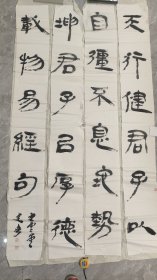 天行健君子以
自彊不息地勢
坤君子㠯厚德
載物易經句